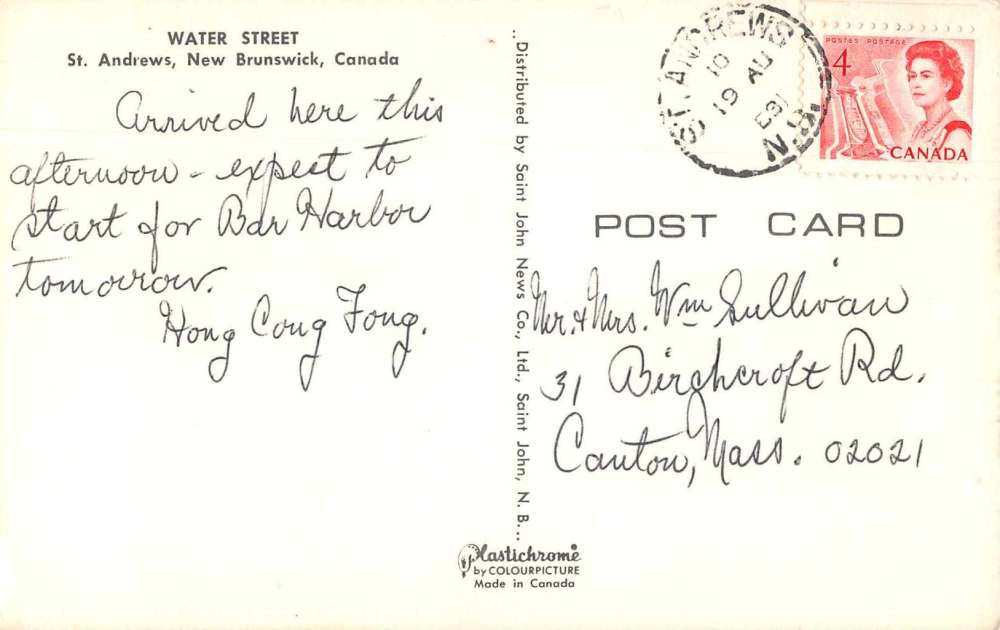 WATER STREET
St. Andrews, New Brunswick, Canada
Arrived here this
afternoon - expect to
start for Bar Harbor
tomorrow.
Hong Cong Fong.
..Distributed by Saint John News Co., Ltd., Saint John, N. B...
ST. ANDREWS
10
19 AU
69
N.B.
POSTES POSTAGE
4
CANADA
POST CARD
Mr. & Mrs. Wm Sullivan
31 Birchcroft Rd.
Canton, Mass. 02021
Plastichrome
by COLOURPICTURE
Made in Canada